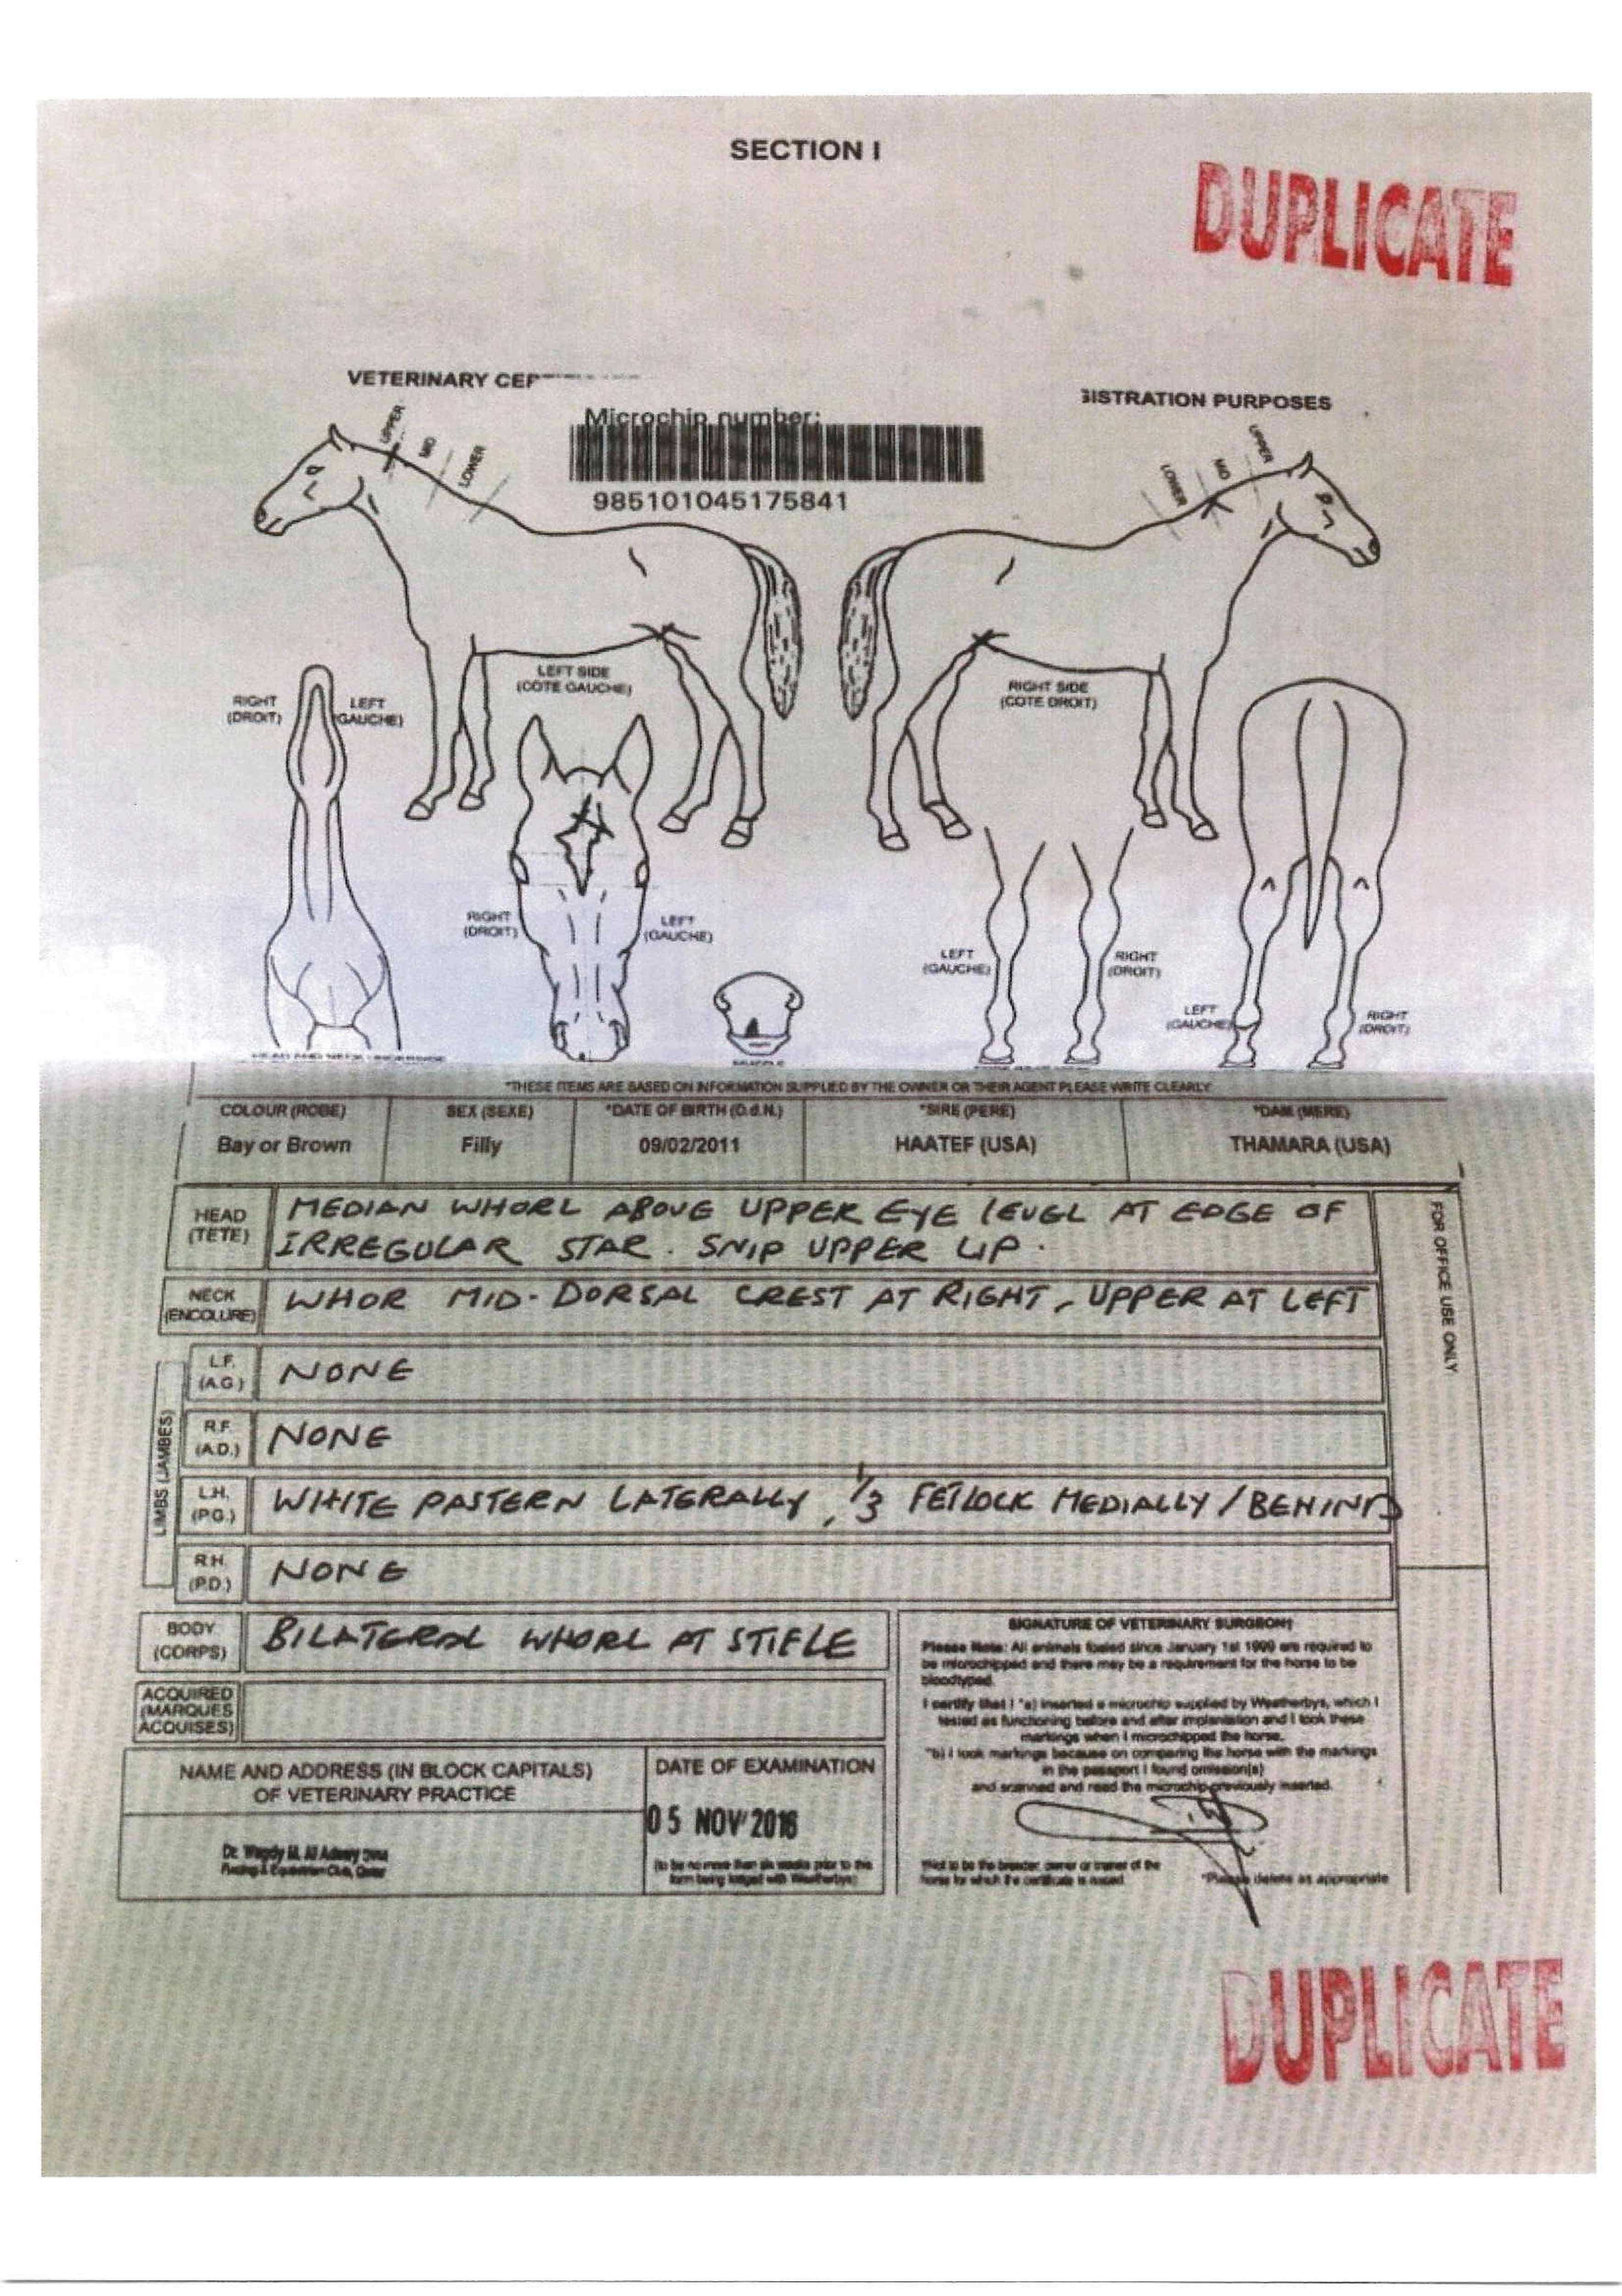 SECTION I
DUPLICATE
VETERINARY CER
Microchip number:
985101045175841
GISTRATION PURPOSES
UPPER
MID
LOWER
LOWER
MID
UPPER
LEFT SIDE
(COTE GAUCHE)
RIGHT SIDE
(COTE DROIT)
RIGHT
(DROIT)
LEFT
(GAUCHE)
RIGHT
(DROIT)
LEFT
(GAUCHE)
LEFT
(GAUCHE)
RIGHT
(DROIT)
LEFT
(GAUCHE)
RIGHT
(DROIT)
*THESE ITEMS ARE BASED ON INFORMATION SUPPLIED BY THE OWNER OR THEIR AGENT PLEASE WRITE CLEARLY
COLOUR (ROBE) SEX (SEXE) *DATE OF BIRTH (D.d.N.) *SIRE (PERE) *DAM (MERE)
Bay or Brown Filly 09/02/2011 HAATEF (USA) THAMARA (USA)
HEAD
(TETE)
MEDIAN WHORL ABOVE UPPER EYE LEVEL AT EDGE OF
IRREGULAR STAR. SNIP UPPER LIP.
NECK
(ENCOLURE)
WHOR MID-DORSAL CREST AT RIGHT, UPPER AT LEFT
FOR OFFICE USE ONLY
LIMBS (JAMBES)
L.F.
(A.G.)
NONE
R.F.
(A.D.)
NONE
L.H.
(P.G.)
WHITE PASTERN LATERALLY, 1/3 FETLOCK MEDIALLY / BEHIND
R.H.
(P.D.)
NONE
BODY
(CORPS)
BILATERAL WHORL AT STIFLE
ACQUIRED
(MARQUES
ACQUISES)
SIGNATURE OF VETERINARY SURGEON†
Please Note: All animals foaled since January 1st 1999 are required to
be microchipped and there may be a requirement for the horse to be
bloodtyped.
I certify that I *a) inserted a microchip supplied by Weatherbys, which I
tested as functioning before and after implantation and I took these
markings when I microchipped the horse.
*b) I took markings because on comparing the horse with the markings
in the passport I found omission(s)
and scanned and read the microchip previously inserted.
†Not to be the breeder, owner or trainer of the
horse for which the certificate is issued
*Please delete as appropriate
NAME AND ADDRESS (IN BLOCK CAPITALS)
OF VETERINARY PRACTICE
Racing & Equestrian Club, Qatar
DATE OF EXAMINATION
05 NOV 2016
(to be no more than six weeks prior to this
form being lodged with Weatherbys)
DUPLICATE